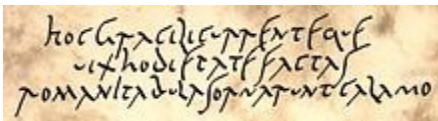 hoc gracili currenteque
uix hodie patefactas
romani tabulas ornarunt calamo